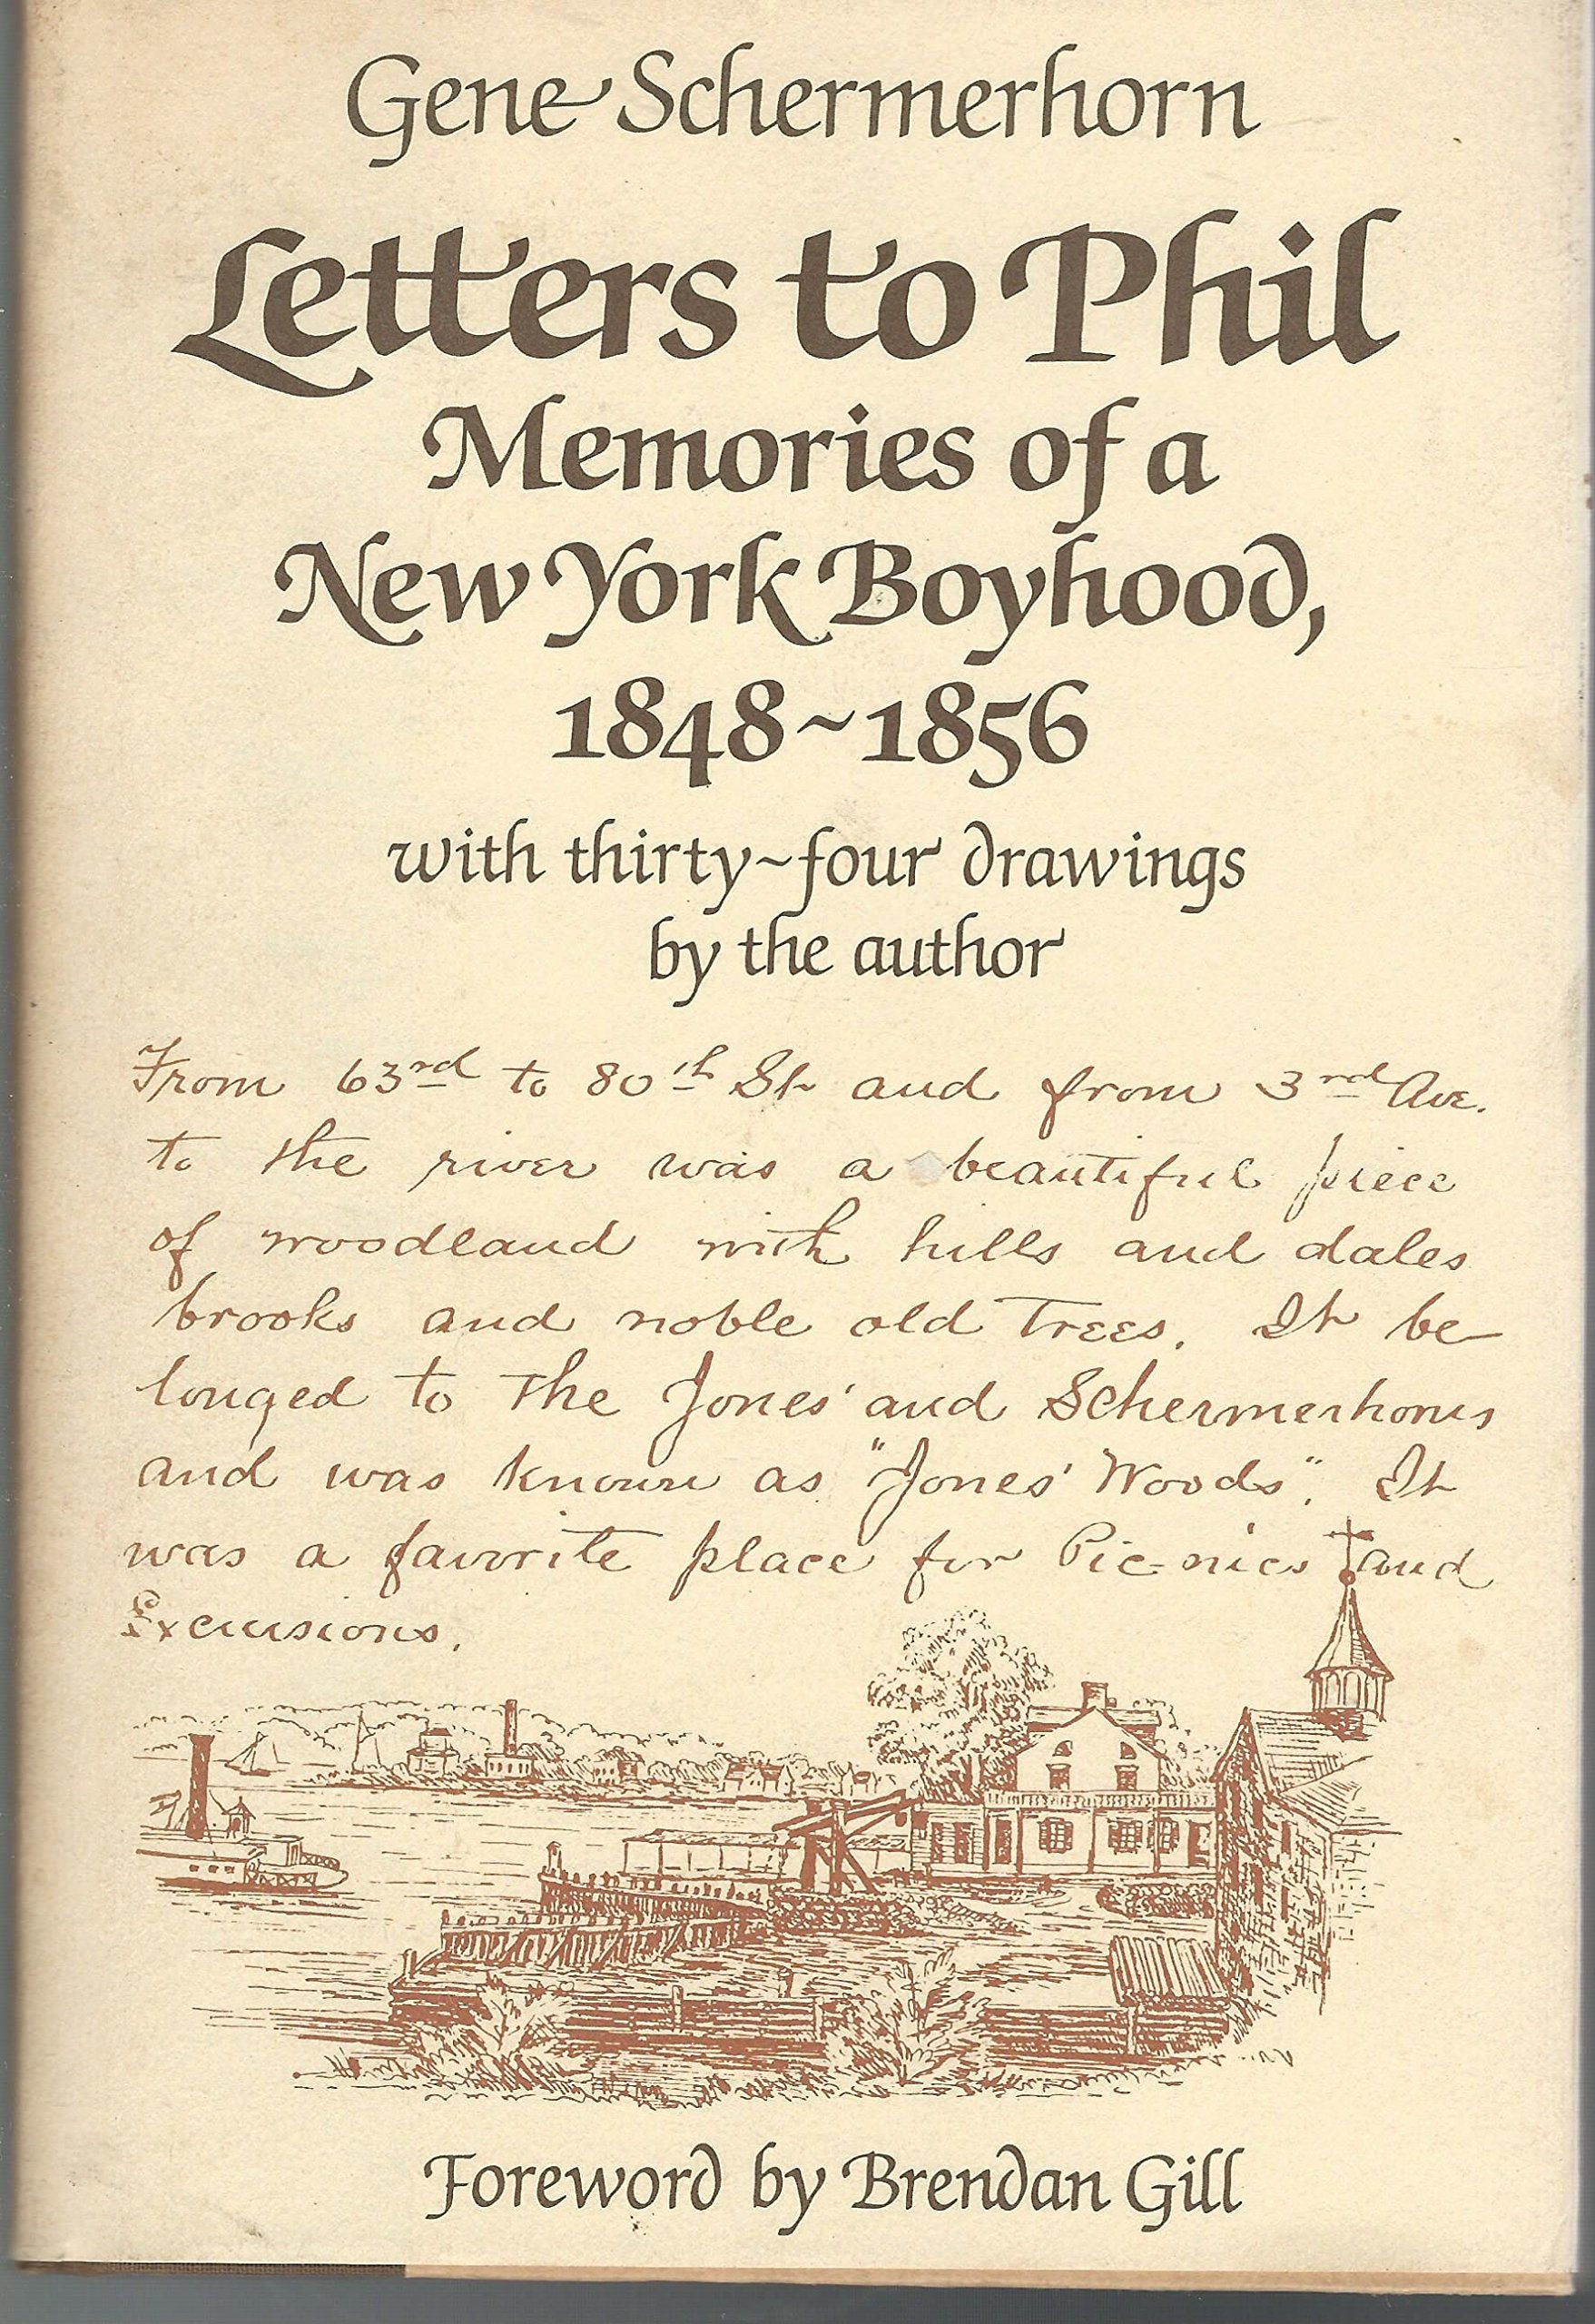 Gene Schermerhorn
Letters to Phil
Memories of a
New York Boyhood,
1848~1856
with thirty~four drawings
by the author
From 63rd to 80th St and from 3rd Ave.
to the river was a beautiful piece
of woodland with hills and dales
brooks and noble old trees. It be-
longed to the Jones' and Schermerhorns
and was known as "Jones' Woods". It
was a favorite place for Pic-nics and
Excursions.
Foreword by Brendan Gill